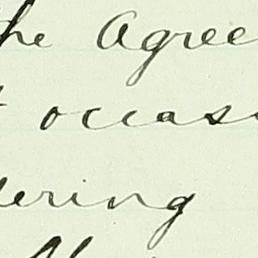 he Agree
occas
ering